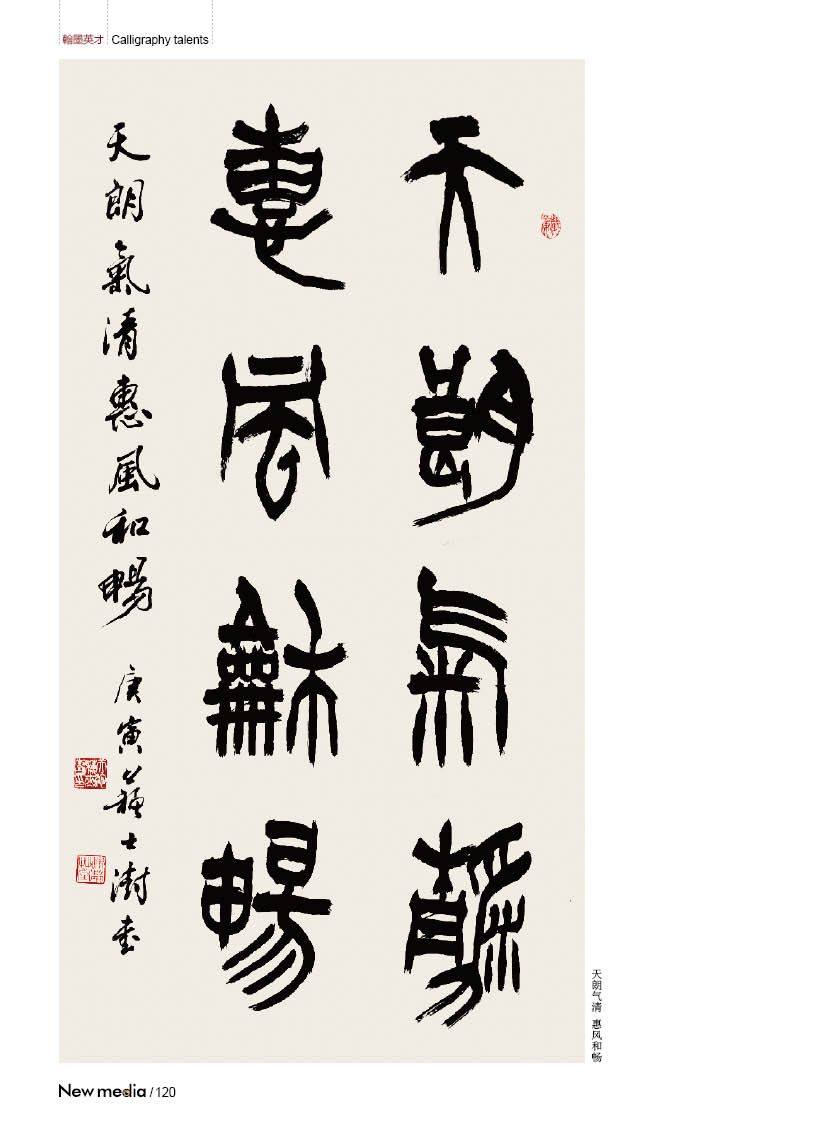 翰墨英才 Calligraphy talents
天朗氣清
惠風龢暢
天朗氣清惠風和暢
庚寅 蘇士澍書
天朗气清 惠风和畅
New media / 120